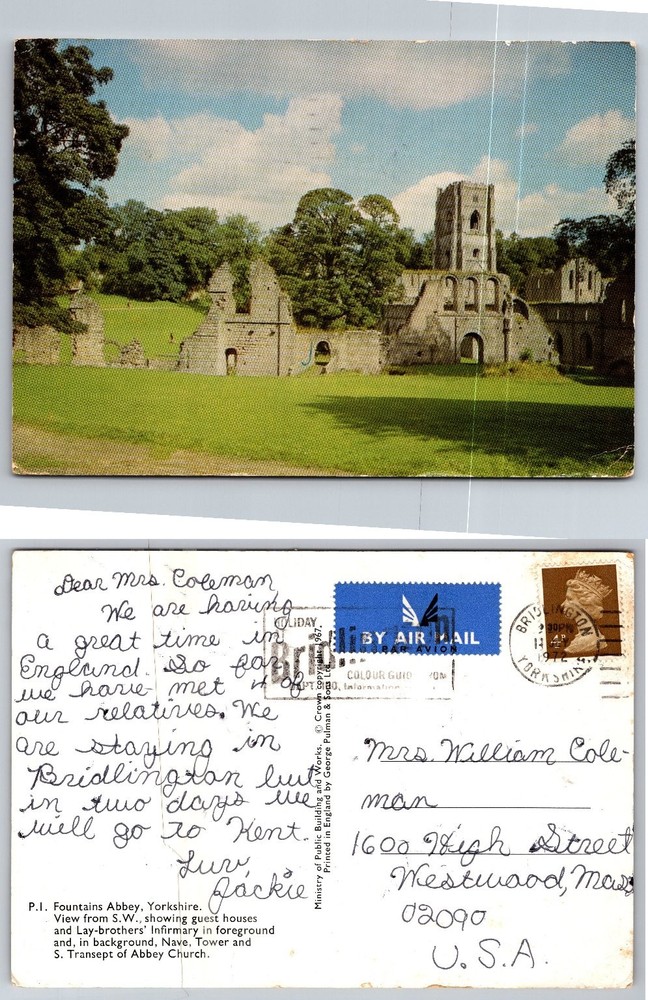 Dear Mrs. Coleman
We are having
a great time in
England. So far
we have met 4 of
our relatives. We
are staying in
Bridlington but
in two days we
will go to Kent.
Luv,
Jackie
P.1. Fountains Abbey, Yorkshire.
View from S.W., showing guest houses
and Lay-brothers' Infirmary in foreground
and, in background, Nave, Tower and
S. Transept of Abbey Church.
Ministry of Public Building and Works. © Crown copyright 1967.
Printed in England by George Pulman & Sons Ltd.
HOLIDAY
Bridlington
COLOUR GUIDE
Information
BY AIR MAIL
PAR AVION
BRIDLINGTON
1972
YORKSHIRE
Mrs. William Cole-
man
1600 High Street
Westwood, Mass
02090
U.S.A.